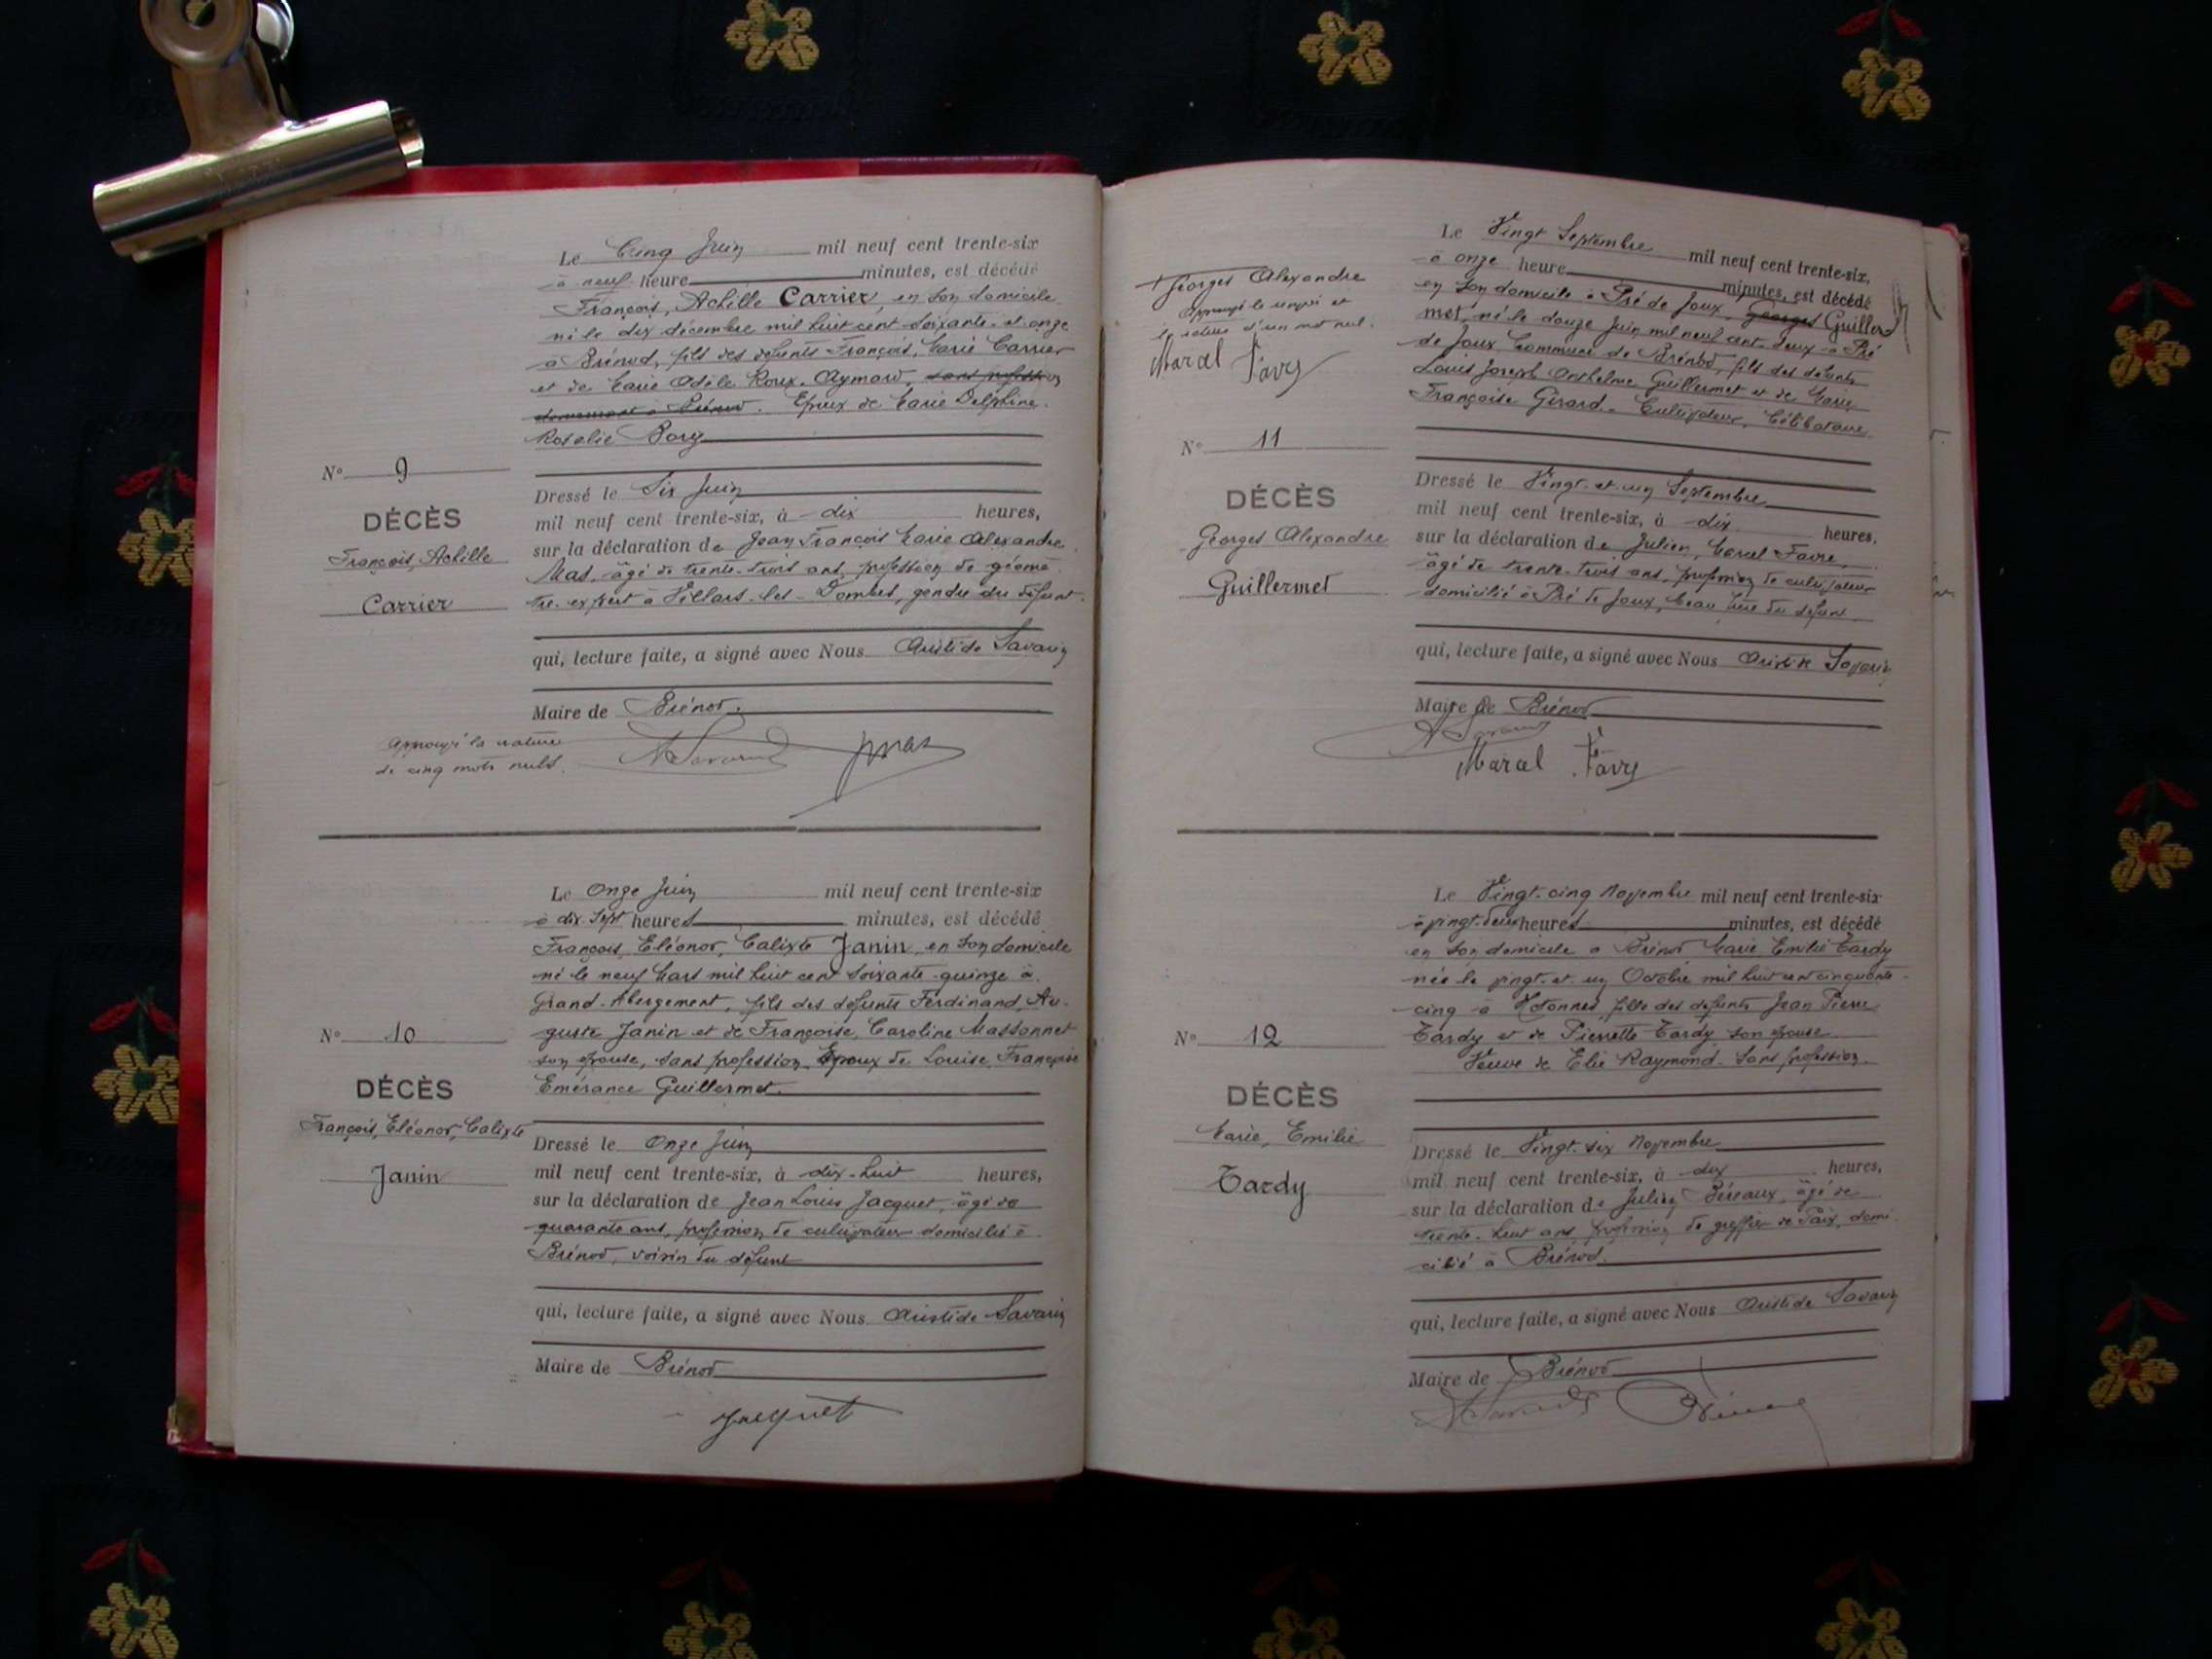 Le Cinq Juin mil neuf cent trente-six
à neuf heure minutes, est décédé
François, Achille Carrier, en son domicile
né le dix décembre mil huit cent soixante-et-onze
à Brénod, fils des défunts François, Marie Carrier
et de Marie Adèle Roux-Aymard, sans profession
demeurant à Brénod. Epoux de Marie Delphine
Rosalie Bory
N° 9
DÉCÈS
François, Achille
Carrier
Dressé le Six Juin
mil neuf cent trente-six, à dix heures,
sur la déclaration de Jean François Marie Alexandre
Mas, âgé de trente-trois ans, profession de géomè-
tre-expert à Villars-les-Dombes, gendre du défunt.
qui, lecture faite, a signé avec Nous Aristide Savarin
Maire de Brénod.
Approuvé la rature
de cinq mots nuls.
A Savarin
JMas
Le onze Juin mil neuf cent trente-six
à dix-sept heures minutes, est décédé
François, Eléonor, Calixte Janin, en son domicile
né le neuf Mars mil huit cent soixante-quinze à
Grand-Abergement, fils des défunts Ferdinand, Au-
guste Janin et de Françoise, Caroline Massonnet
son épouse, sans profession. Epoux de Louise, Françoise
Emérance Guillermet.
N° 10
DÉCÈS
François, Eléonor, Calixte
Janin
Dressé le Onze Juin
mil neuf cent trente-six, à dix-huit heures,
sur la déclaration de Jean Louis Jacquet, âgé de
quarante ans, profession de cultivateur domicilié à
Brénod, voisin du défunt
qui, lecture faite, a signé avec Nous Aristide Savarin
Maire de Brénod
Jacquet
Le Vingt Septembre mil neuf cent trente-six,
à onze heure minutes, est décédé
en son domicile à Pré de Joux, Georges Guiller-
met, né le douze Juin mil neuf cent deux à Pré
de Joux, Commune de Brénod, fils des défunts
Louis Joseph Anthelme Guillermet et de Marie
Françoise Girard. Cultivateur, Célibataire
+ Georges Alexandre
Approuvé le renvoi et
la rature d'un mot nul.
Marcel Favre
N° 11
DÉCÈS
Georges Alexandre
Guillermet
Dressé le Vingt-et-un Septembre
mil neuf cent trente-six, à dix heures,
sur la déclaration de Julien, Marcel Favre,
âgé de trente-trois ans, profession de cultivateur
domicilié à Pré de Joux, beau frère du défunt
qui, lecture faite, a signé avec Nous Aristide Savarin
Maire de Brénod
A Savarin
Marcel Favre
Le Vingt-cinq Novembre mil neuf cent trente-six
à vingt-deux heures minutes, est décédé
en son domicile à Brénod Marie Emilie Tardy
née le vingt-et-un Octobre mil huit cent cinquante-
cinq à Hotonnes, fille des défunts Jean Pierre
Tardy et de Pierrette Tardy son épouse
Veuve de Elie Raymond. Sans profession.
N° 12
DÉCÈS
Marie, Emilie
Tardy
Dressé le Vingt-six Novembre
mil neuf cent trente-six, à dix heures,
sur la déclaration de Julien Béreaux, âgé de
trente-huit ans, profession de greffier de Paix, domi-
cilié à Brénod.
qui, lecture faite, a signé avec Nous Aristide Savarin
Maire de Brénod
A Savarin